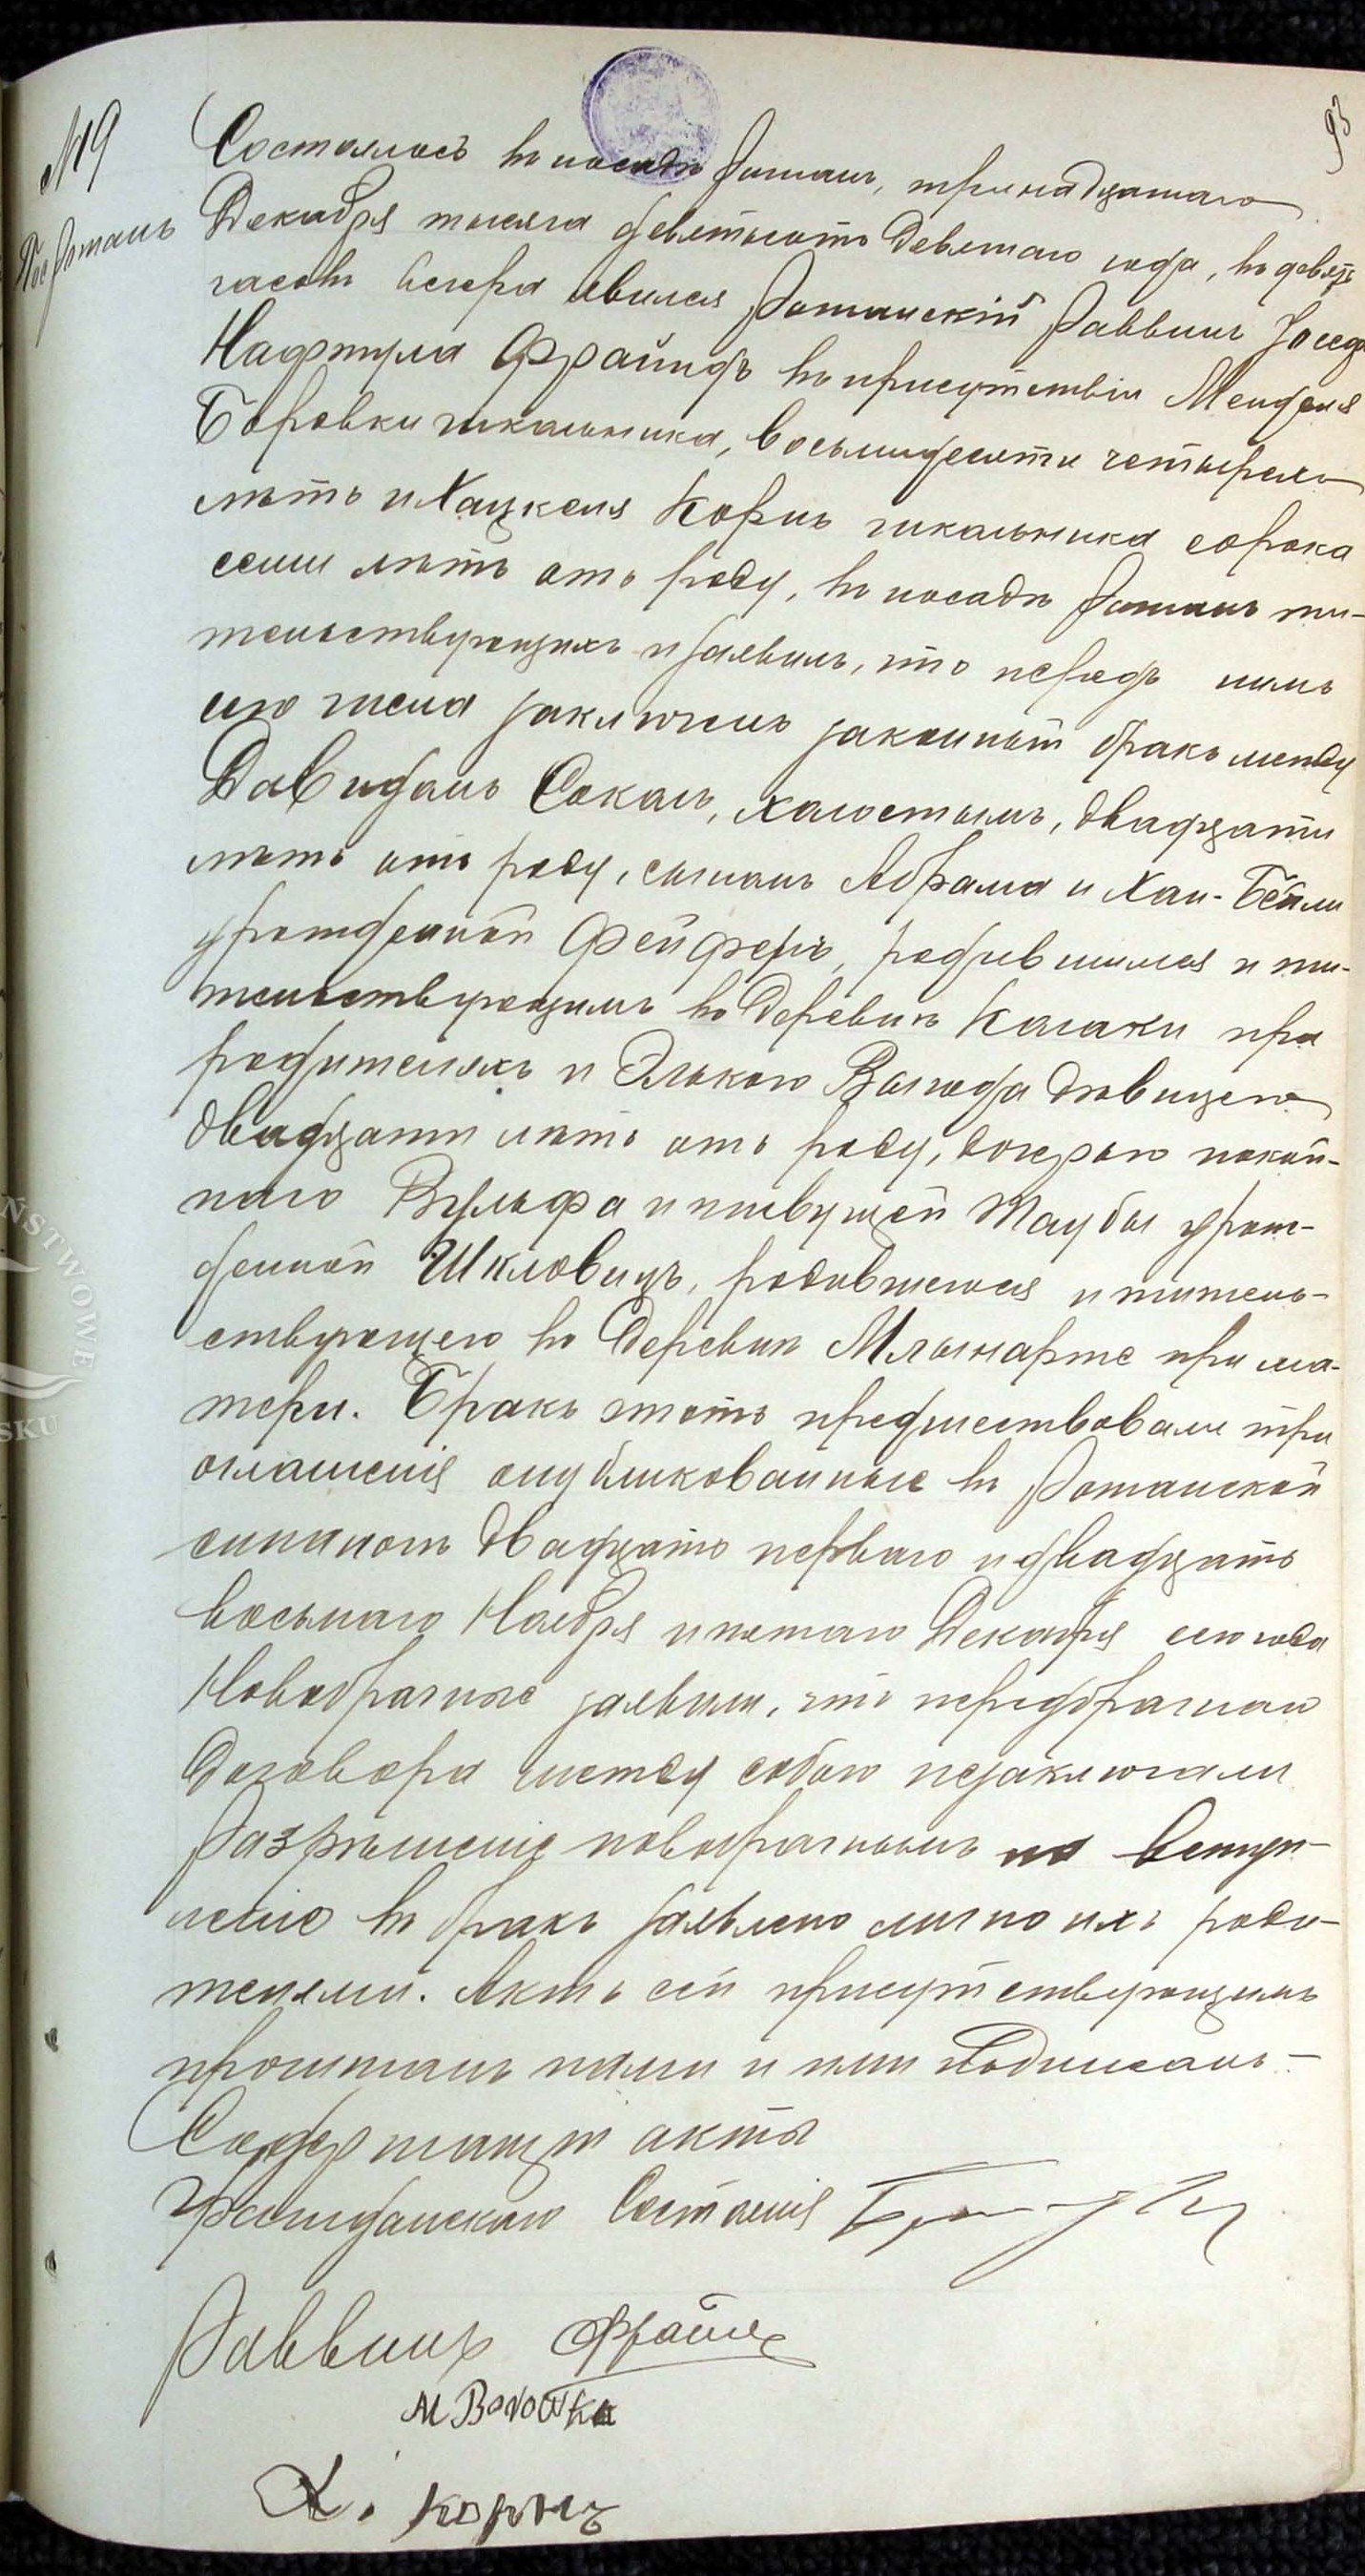 93
№ 19
Пос. Рожанъ
Состоялось въ посадѣ Рожанѣ, тринадцатаго
Декабря тысяча девятьсотъ девятаго года, въ девять
часовъ вечера явился Рожанскій Раввинъ Іосефъ
Нафтула Фрайндъ въ присутствіи Менделя
Боровки школьника, восьмидесяти четырехъ
лѣтъ и Хацкеля Корнъ школьника сорока
семи лѣтъ отъ роду, въ посадѣ Рожанѣ жи-
тельствующихъ и заявилъ, что передъ нимъ
сего числа заключенъ законный бракъ между
Давидомъ Сокалъ, холостымъ, двадцати
лѣтъ отъ роду, сыномъ Абрама и Хаи-Бейли
урожденной Фейферъ, родившимся и жи-
тельствующимъ въ деревнѣ Калаки при
родителяхъ и Элькою Выгода дѣвицею
двадцати лѣтъ отъ роду, дочерью покой-
наго Вульфа и живущей Таубы урож-
денной Шкловицъ, родившеюся и житель-
ствующею въ деревнѣ Млынарже при ма-
тери. Бракъ этотъ предшествовали три
оглашенія опубликованные въ Рожанской
синагогѣ двадцать перваго и двадцать
восьмаго Ноября и пятаго Декабря сего года
Новобрачные заявили, что передбрачнаго
договора между собою незаключали
Разрѣшеніе новобрачнымъ на вступ-
леніе въ бракъ заявлено лично ихъ роди-
телями. Актъ сей присутствующимъ
прочитанъ нами и ими подписанъ –
Содержащій акты
Гражданскаго Состоянія
Раввинъ Фрайнд
M Borowka
Х. Корнъ